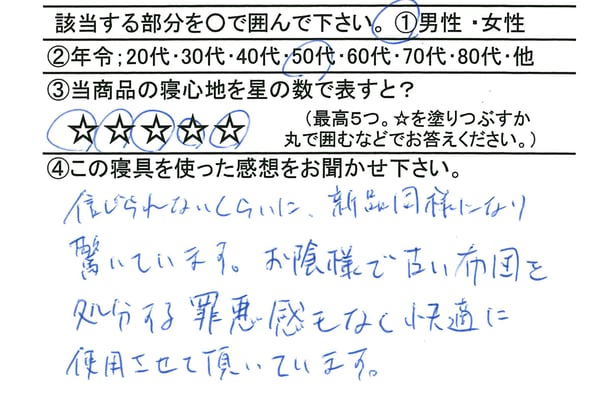 該当する部分を〇で囲んで下さい。①男性・女性
②年令；20代・30代・40代・50代・60代・70代・80代・他
③当商品の寝心地を星の数で表すと？
☆☆☆☆☆
（最高５つ。☆を塗りつぶすか
丸で囲むなどでお答えください。）
④この寝具を使った感想をお聞かせ下さい。
信じられないくらいに、新品同様になり
驚いています。お陰様で古い布団を
処分する罪悪感もなく快適に
使用させて頂いています。